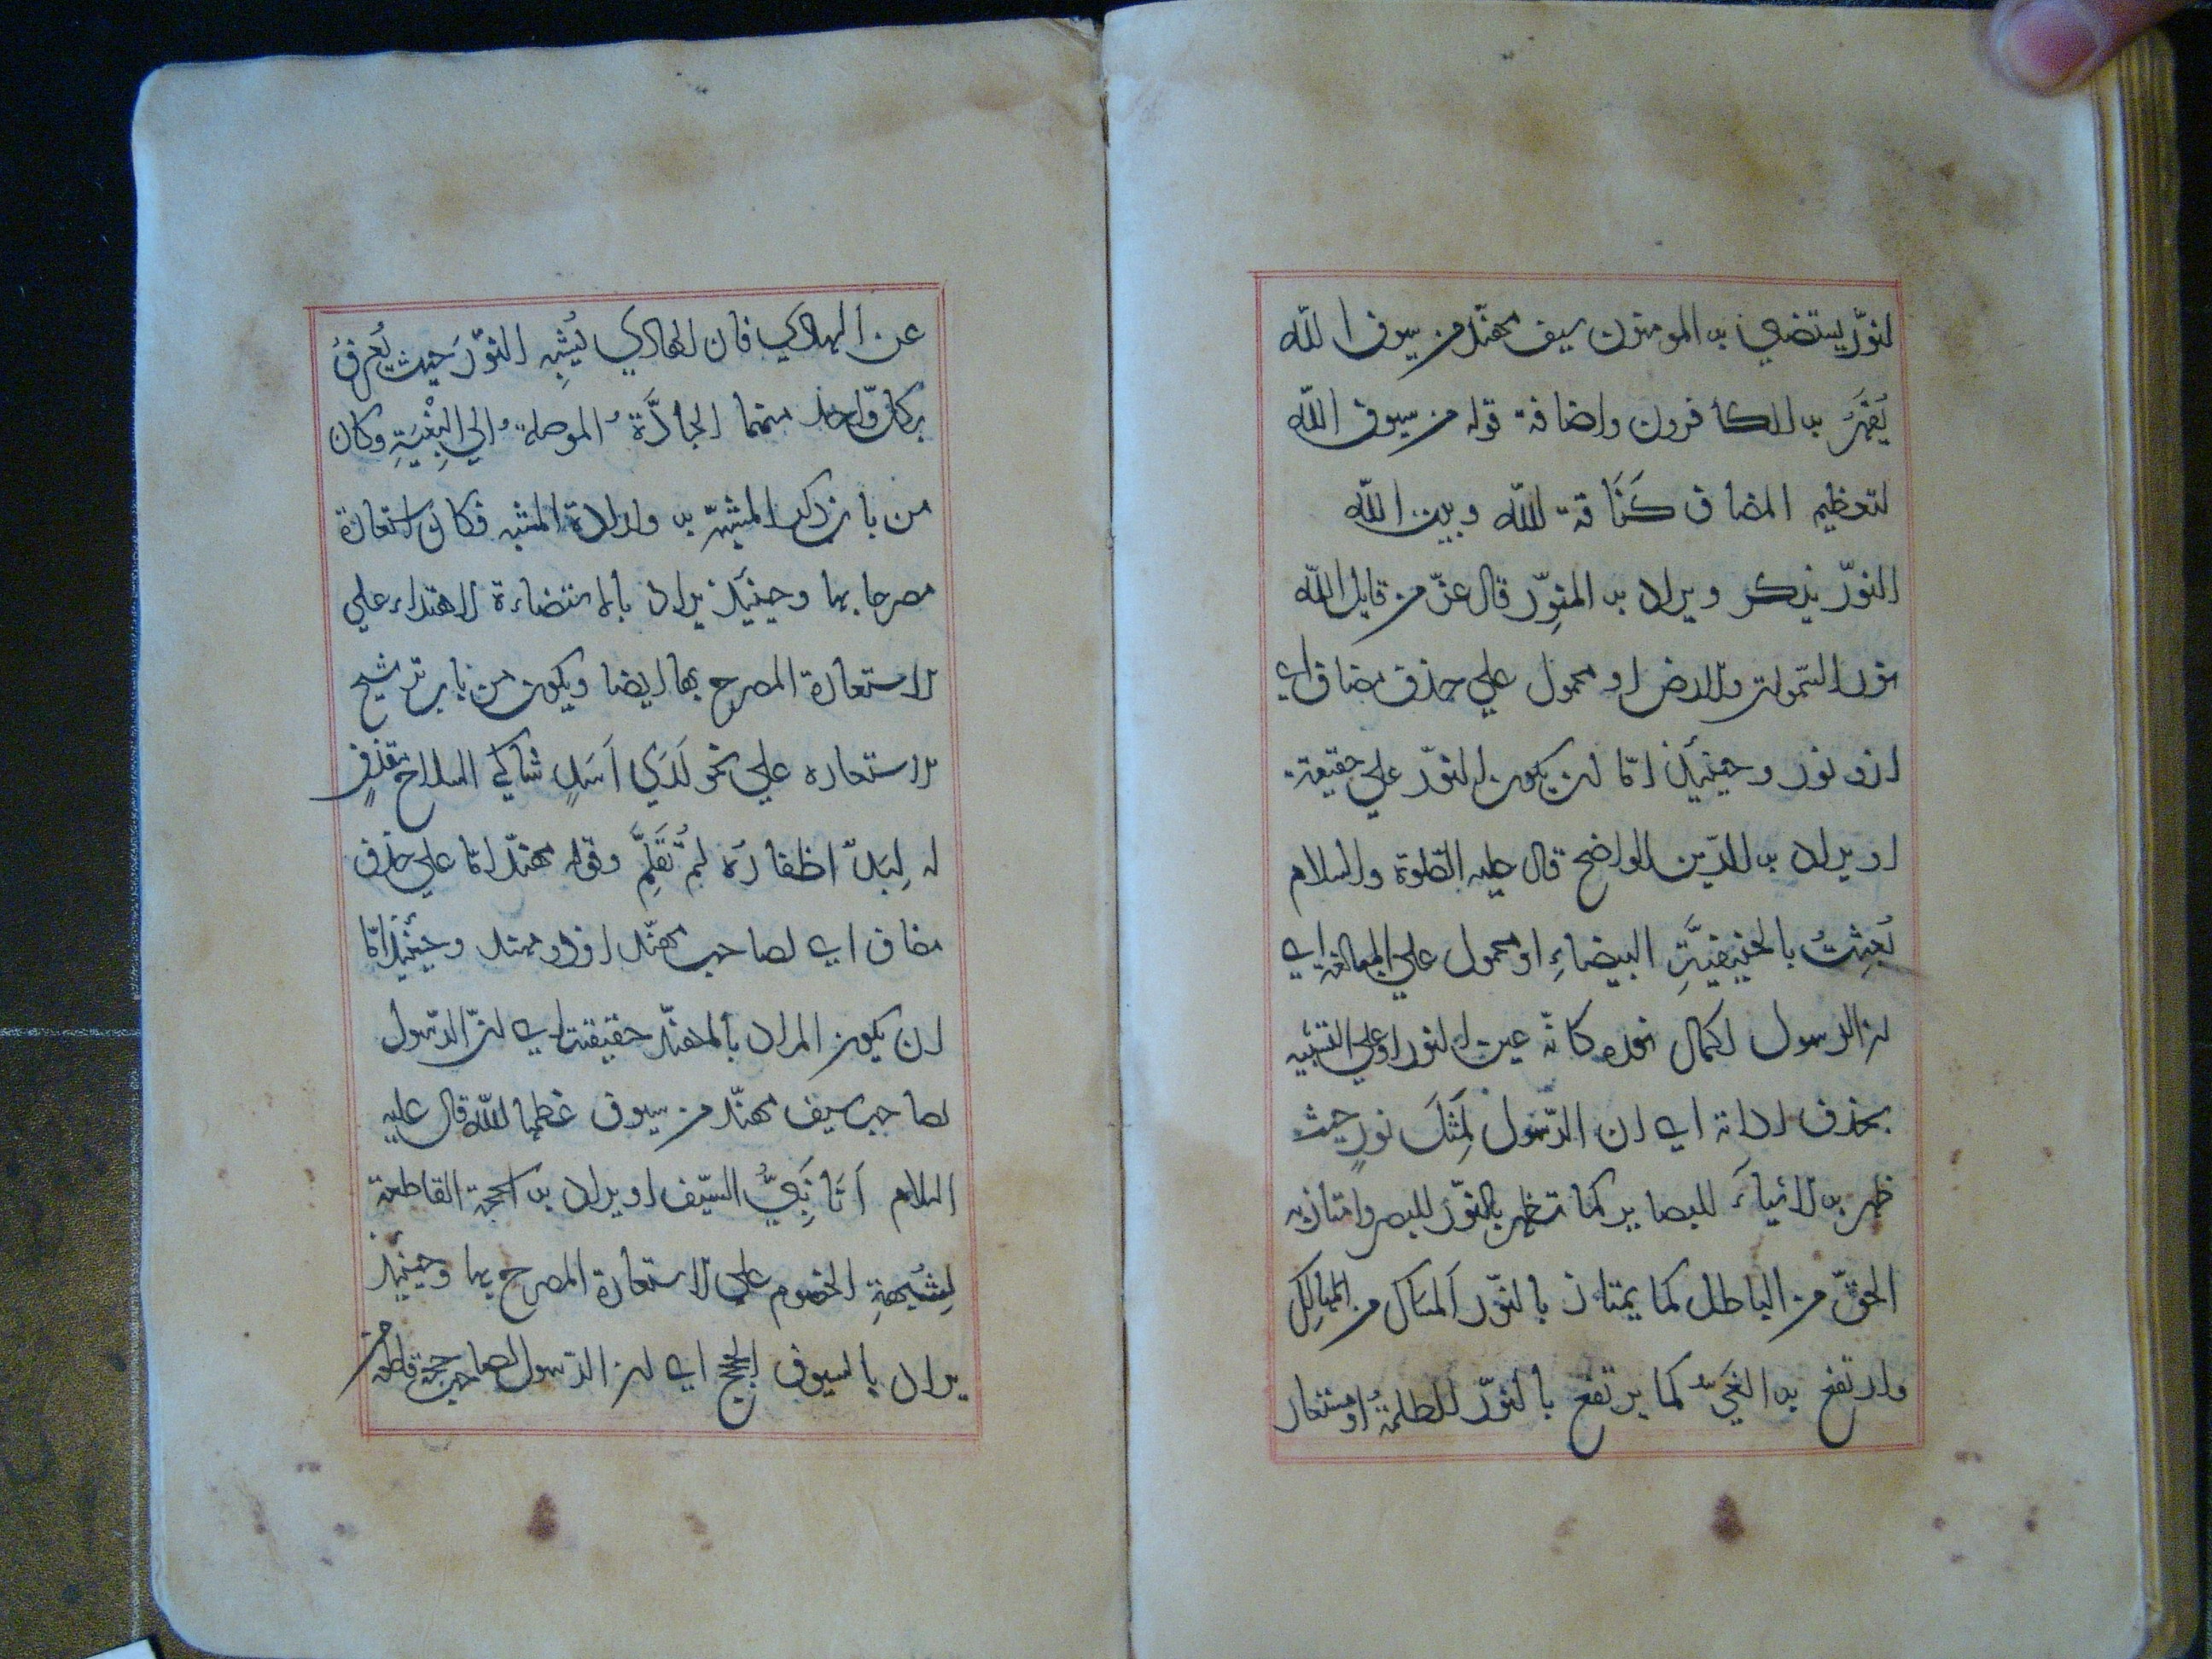 لنور يستضيء به المومنون سيف مهند من سيوف الله
يُقهَرُ به الكافرون واضافة قوله من سيوف الله
لتعظيم المضاف كَنَاقة الله وبيت الله
النوّر يذكر ويراد به المنوِّر قال عزّ من قايل الله
نور السّموات والارض او محمول علي حذف مضاف اي
لذو نور وحينئذ امّا ان يكون النوّر علي حقيقته
او يراد به الدّين الواضح قال عليه الصّلوة والسلام
بُعِثتُ بالحنيفيَّةِ البيضاءِ او محمول علي المبالغة اي
ان الرسول لكمال نوره كانّه عين النور او علي التشبيه
بحذف اداته اي ان الرّسول لَمِثلَ نورٍ حيث
ظهر به الاشياءَ للبصاير كما تظهر بالنوّر للبصر وامتاز به
الحقّ من الباطل كما يمتاز بالنوّر المسَالك من المهالِك
وارتفع به الغَيّ كما يرتفع بالنوّر الظلمةُ او مستعار
عن الهادي فان الهادي يُشبِه النوّرَ حيث يُعرفُ
بكل وّاحد منهما الجادَّةُ الموصلةُ الي البِغْيَةِ وكان
من باب ذكر المشبّه به وارادة المشبه فكان استعارة
مصرحا بها وحينئذ يراد بالاستضاءة الاهتداء علي
الاستعارة المصرح بها ايضا ويكون من باب ترشيح
الاستعاره علي نحو لَدَي اَسَدٍ شاكي السلاح مقذفٍ
له لِبَدٌ اظفارُه لم تُقَلَّمِ وقوله مهنّد امّا علي حذف
مضاف اي لصاحب مهنّد او ذو مهند وحينئذ امّا
ان يكون المراد بالمهنّد حقيقته اي انّ الرّسول
لصاحب سيف مهنّد من سيوف عظمها الله قال عليه
السلام اَنَا نَبيُّ السيّف او يراد به الحجة القاطعة
لِشُبهةِ الخصوم علي الاستعارة المصرح بها وحينئذ
يراد بالسيوف الحجج اي ان الرّسول لصاحب حجة قاطعة من